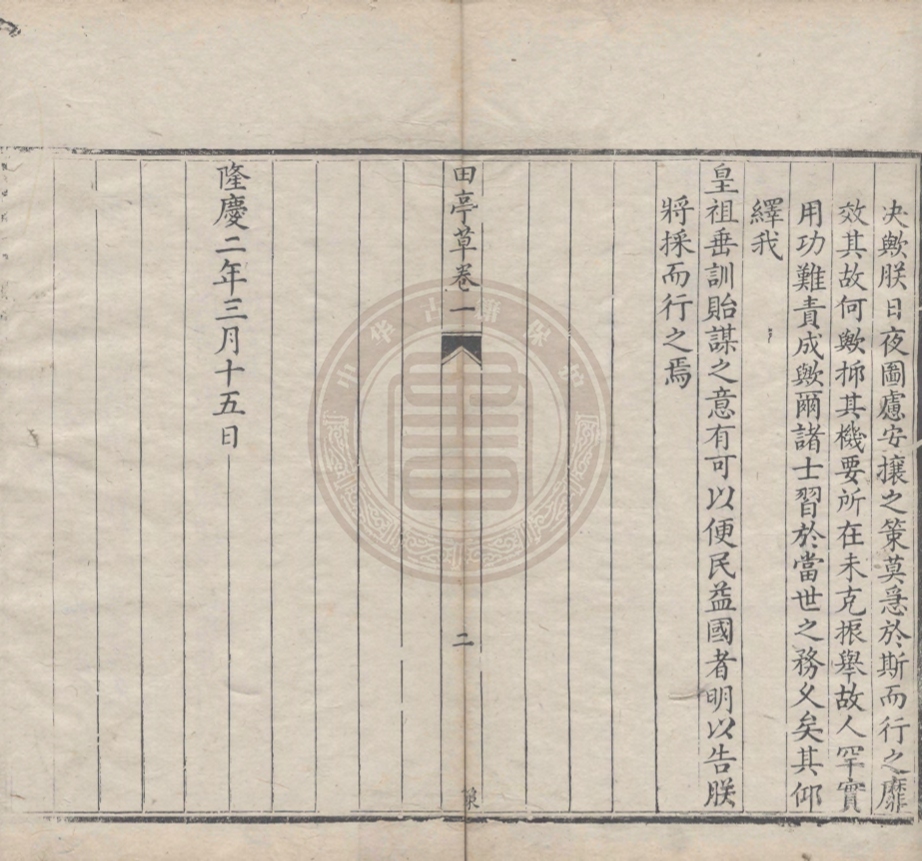 决歟朕日夜圖慮安攘之策莫急於斯而行之靡
效其故何歟抑其機要所在未克振舉故人罕實
用功難責成歟爾諸士習於當世之務乆矣其仰
繹我
皇祖垂訓貽謀之意有可以便民益國者明以告朕
將採而行之焉
田亭草卷一
二
隆慶二年三月十五日
中华古籍保护